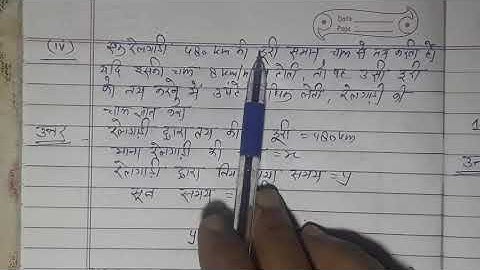 Date
Page
(iv) एक रेलगाड़ी 480 km की दूरी समान चाल से तय करती है
यदि इसकी चाल 8 km/ होती, तो वह उसी दूरी
को तय करने में 3 घंटे लेती, रेलगाड़ी की
चाल ज्ञात करो
उत्तर रेलगाड़ी द्वारा तय की दूरी = 480 km
माना रेलगाड़ी की = x
रेलगाड़ी द्वारा लिया गया समय = y
सूत्र समय =
y
1
उत्